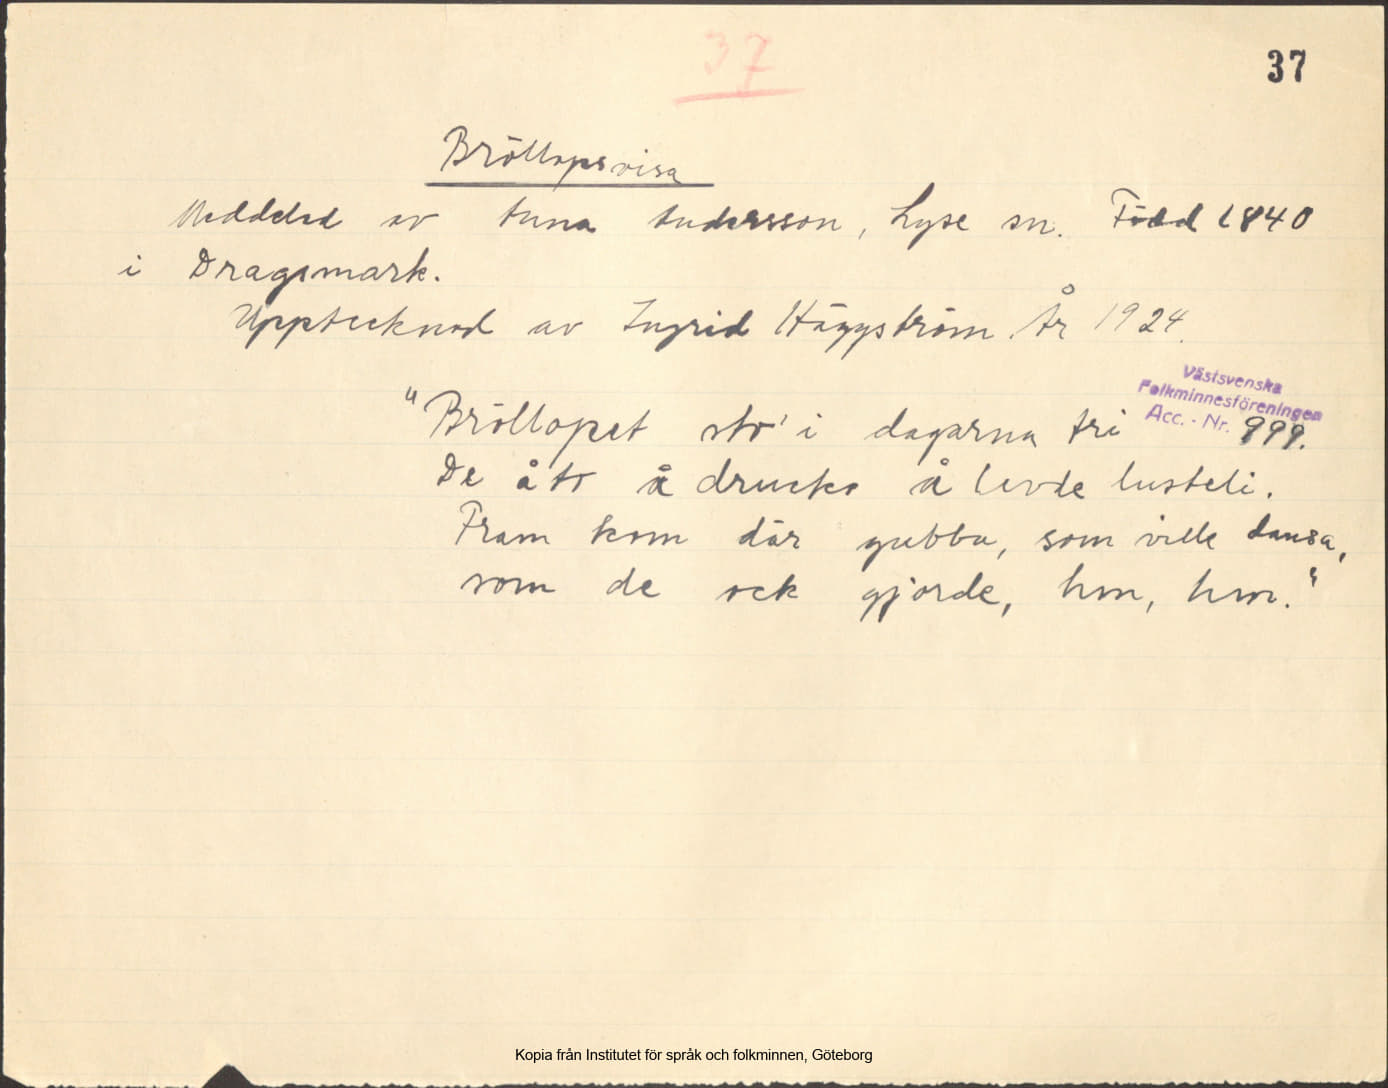 37
37
Bröllopsvisa
Meddelad av Anna Andersson, Lyse sn. Född 1840
i Dragsmark.
Upptecknad av Ingrid Häggström. År 1924.
Västsvenska
Folkminnesföreningen
Acc. - Nr. 999.
"Bröllopet sto' i dagarna tri
De åto å drucko å levde lusteli.
Fram kom där gubba, som ville dansa,
som de ock gjorde, hm, hm."
Kopia från Institutet för språk och folkminnen, Göteborg